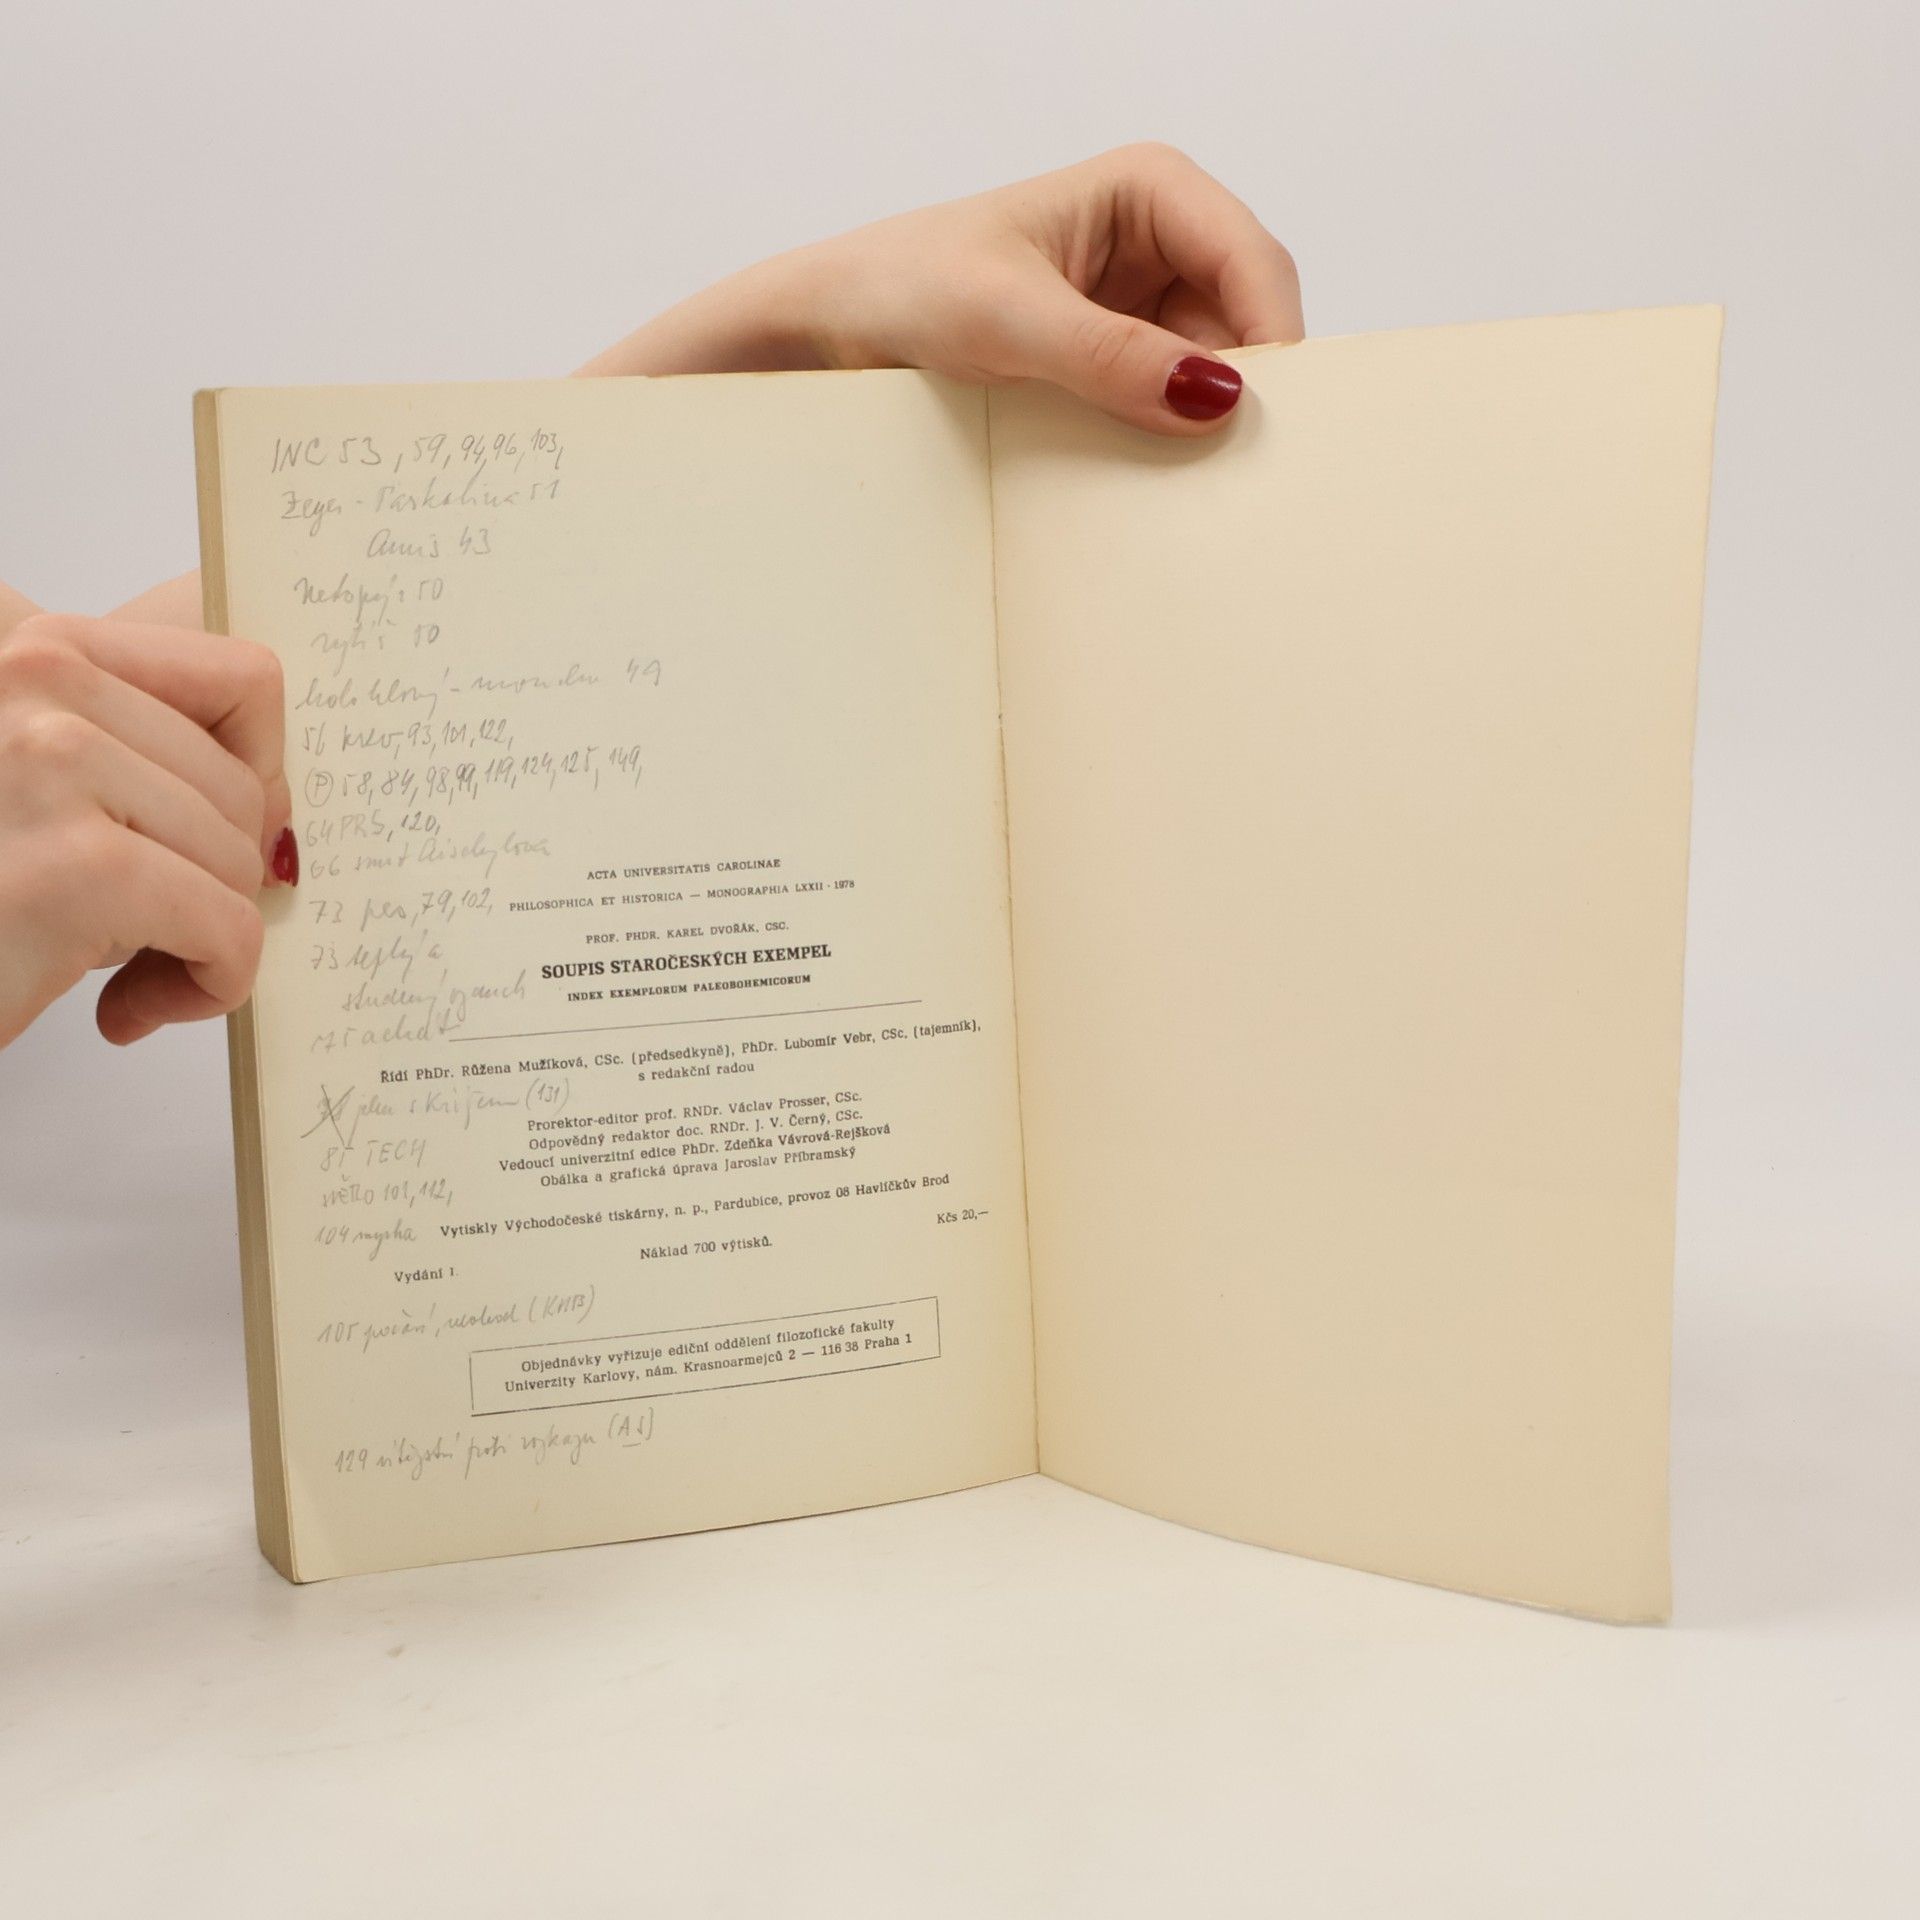 INC 53, 59, 94, 96, 103,
Zeyer - 51
Amis 43
Netopýr 50
rytíř 50
49
56 krev, 93, 101, 122,
P 58, 84, 98, 99, 119, 124, 125, 149,
64 PRS, 120,
66 smrt Aischylova
73 pes, 79, 102,
73 teplý a
studený dech
75 achát
ACTA UNIVERSITATIS CAROLINAE
PHILOSOPHICA ET HISTORICA — MONOGRAPHIA LXXII · 1978
PROF. PHDR. KAREL DVOŘÁK, CSC.
SOUPIS STAROČESKÝCH EXEMPEL
INDEX EXEMPLORUM PALEOBOHEMICORUM
Řídí PhDr. Růžena Mužíková, CSc. (předsedkyně), PhDr. Lubomír Vebr, CSc. (tajemník),
s redakční radou
jelen s křížem (131)
Prorektor-editor prof. RNDr. Václav Prosser, CSc.
Odpovědný redaktor doc. RNDr. J. V. Černý, CSc.
Vedoucí univerzitní edice PhDr. Zdeňka Vávrová-Rejšková
Obálka a grafická úprava Jaroslav Příbramský
85 TECH
SVĚTLO 101, 112,
104 myška
Vytiskly Východočeské tiskárny, n. p., Pardubice, provoz 08 Havlíčkův Brod
Kčs 20,—
Náklad 700 výtisků.
Vydání 1.
105 (KMB)
Objednávky vyřizuje ediční oddělení filozofické fakulty
Univerzity Karlovy, nám. Krasnoarmejců 2 — 116 38 Praha 1
129 vítězství proti rozkazu (AS)